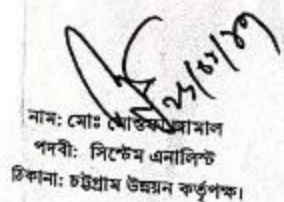 ২৫/০১/২৩
নাম: মোঃ মোস্তফা জামাল
পদবী: সিস্টেম এনালিস্ট
ঠিকানা: চট্টগ্রাম উন্নয়ন কর্তৃপক্ষ।